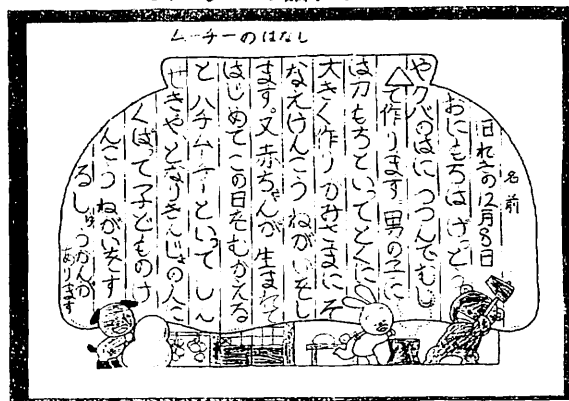 ムーチーのはなし
名前
旧れきの12月8日
おにもちはげっとう
やクバのはにつつんでむし
て作ります。男の子に
は刀もちといってとくに
大きく作りかみさまにそ
なえけんこうねがいをし
ます。又赤ちゃんが生まれて
はじめてこの日をむかえる
とハチムーチーといってしん
せきやとなりきんじょの人に
くばって子どものけ
んこうねがいをす
るしゅうかんが
あります